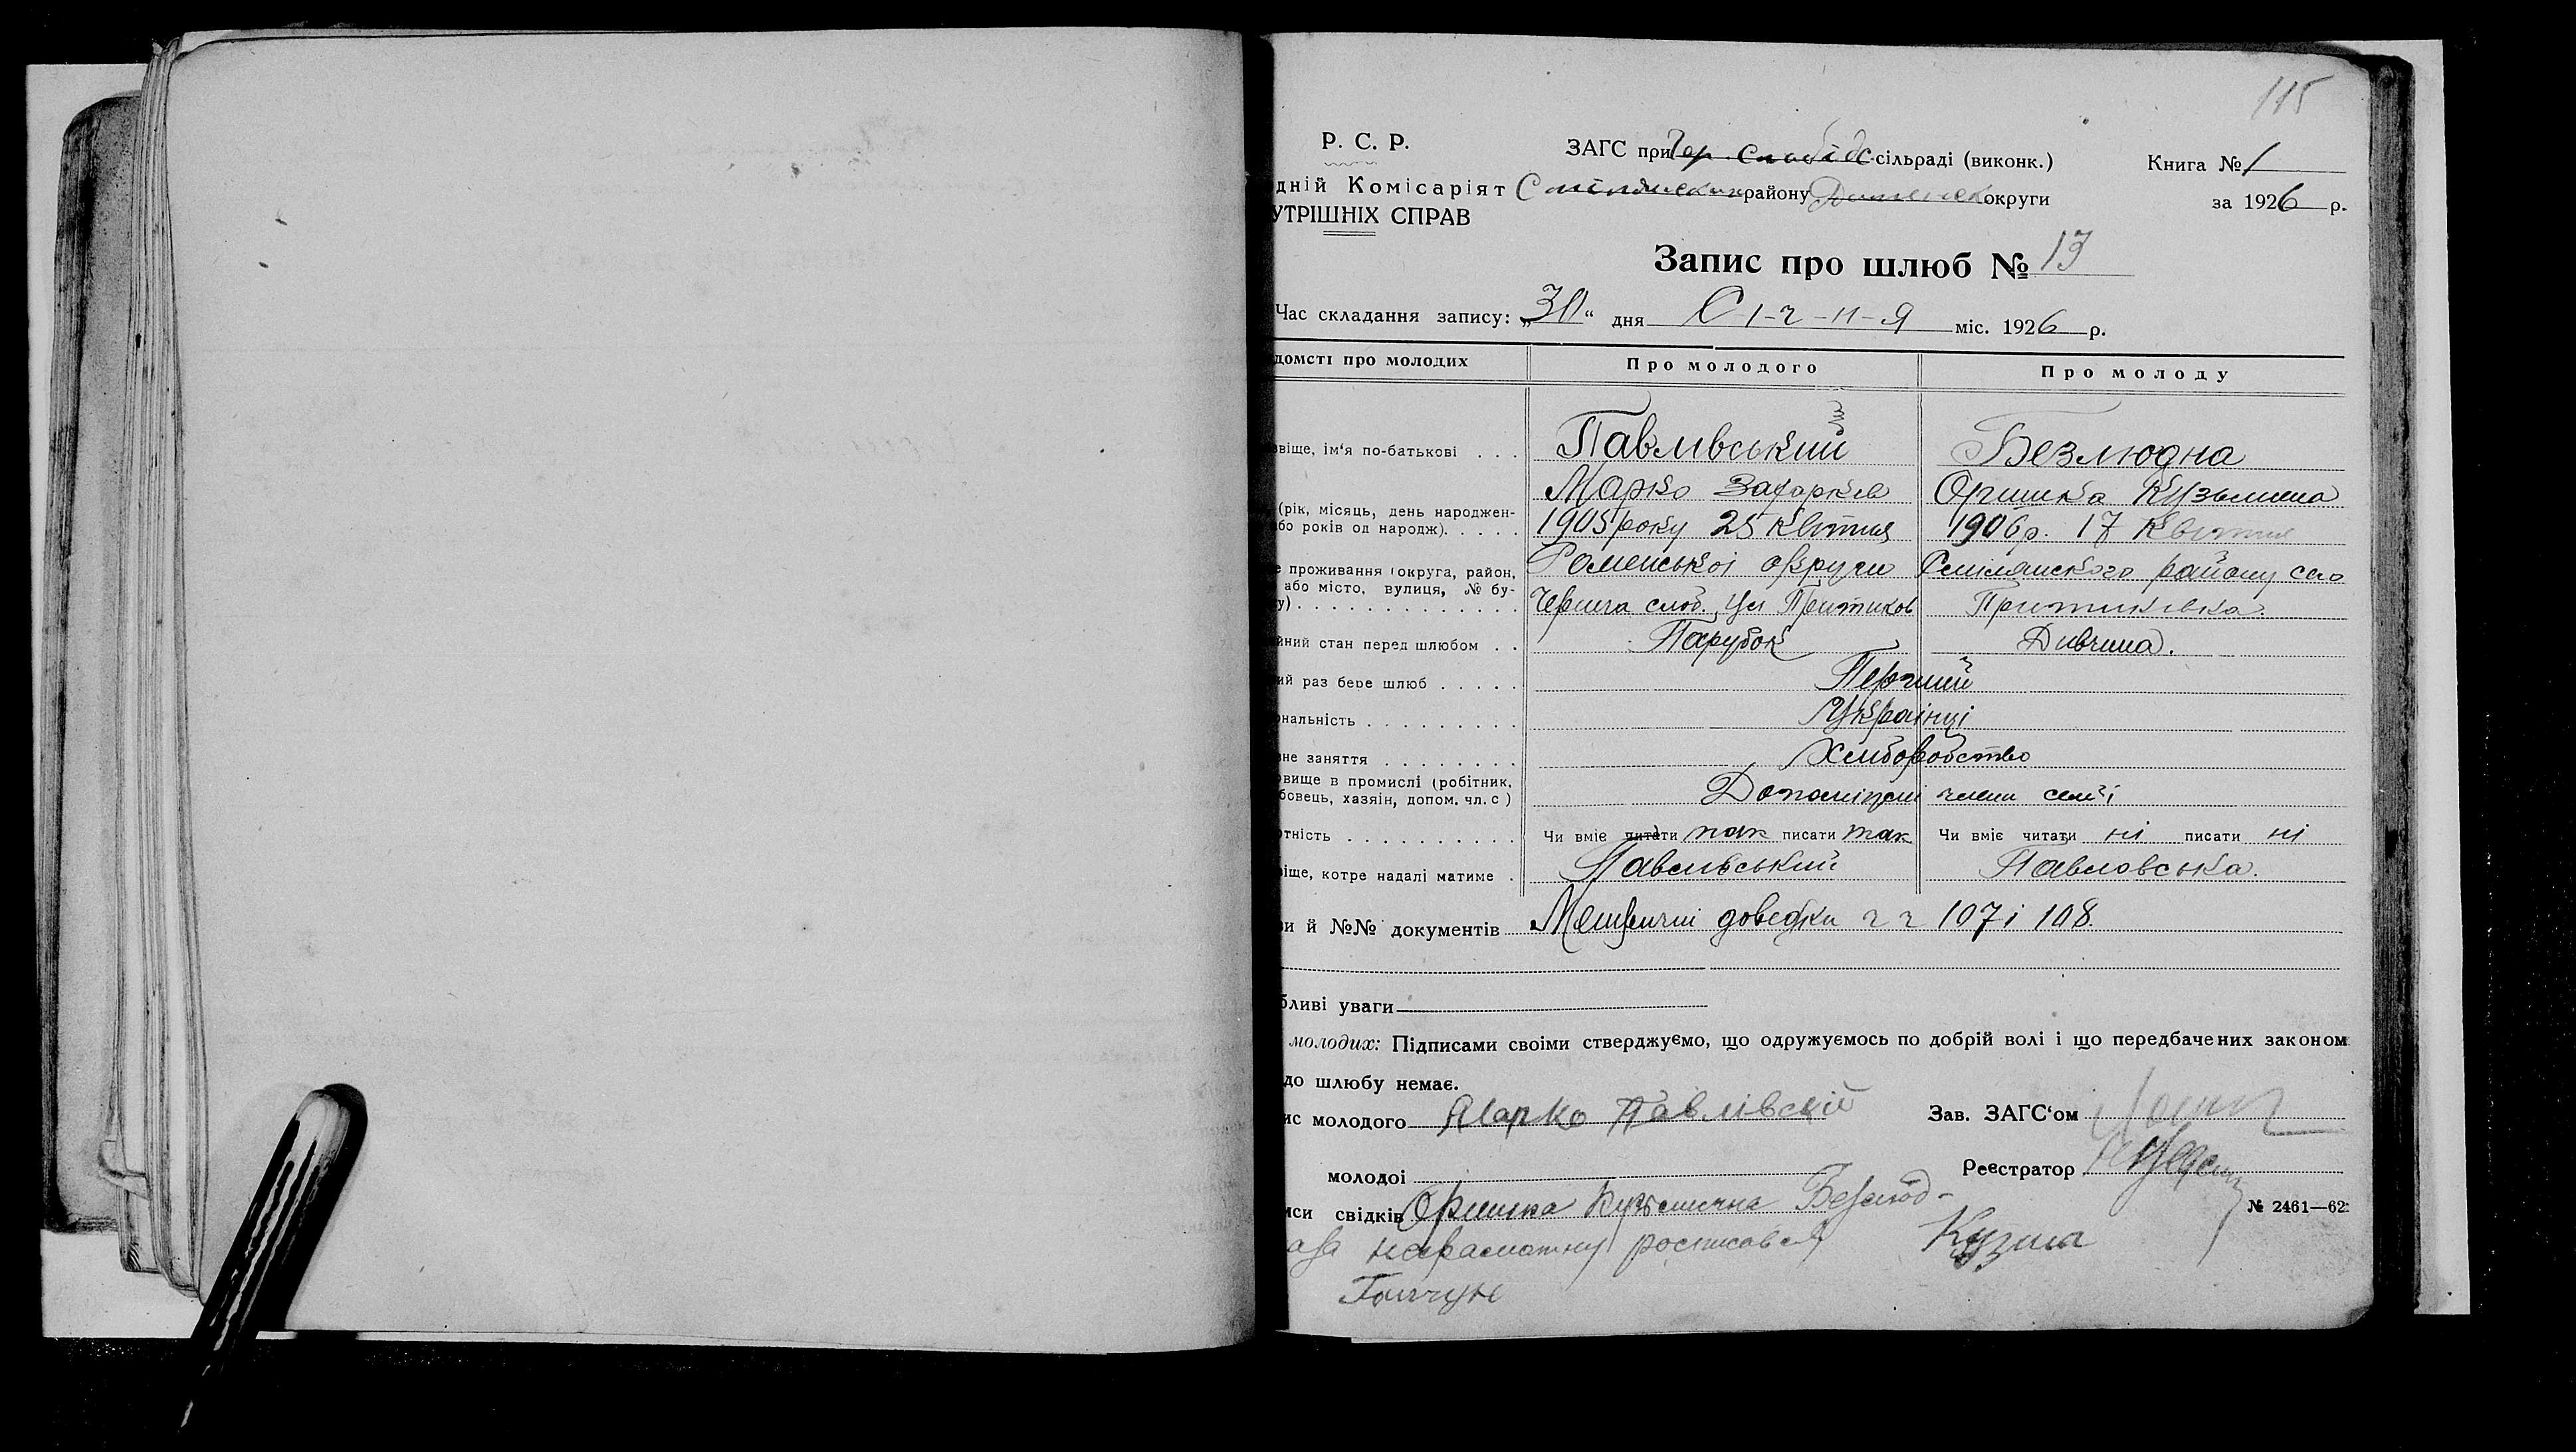 115
Р. С. Р.
ЗАГС при Чер. Слобідс. сільраді (виконк.)
Книга № 1
дній Комісаріят
району округи
за 1926 р.
УТРІШНІХ СПРАВ
Запис про шлюб № 13
Час складання запису: „30“ дня С і-ч-н-я міс. 1926 р.
домсті про молодих
Про молодого
Про молоду
звіще, ім'я по-батькові . . .
Павлівський
Безлюдна
Марко Захарків
Оришка Кузьмина
(рік, місяць, день народжен-
бо років од народж). . . . .
1905 року 25 квітня
1906 р. 17 Квітня
е проживання (округа, район,
або місто, вулиця, № бу-
у) . . . . . . . . . . . . .
Роменської округи
Смілянского району село
Чернича слоб.
Притиківка.
йний стан перед шлюбом . .
Парубок
Дивчина.
ий раз бере шлюб . . . . .
Перший
ональність . . . . . . . . .
Українці
не заняття . . . . . . . .
Хліборобство
овище в промислі (робітник,
бовець, хазяін, допом. чл. с )
Допоміжні члени сем'ї
отність . . . . . . . . . .
Чи вміє читати так писати так
Чи вміє читати ні писати ні
віще, котре надалі матиме .
Павлівський
Павловська.
зи й №№ документів
довідки ч ч 107 і 108.
бливі уваги
молодих: Підписами своіми стверджуємо, що одружуємось по добрій волі і що передбачених законом
до шлюбу немає.
ис молодого Марко Павлівскій
Зав. ЗАГС'ом
молодоі
Реєстратор
иси свідків Оришка Кузьминична Безлюд-
№ 2461—62
неграмотну росписався Кузьма